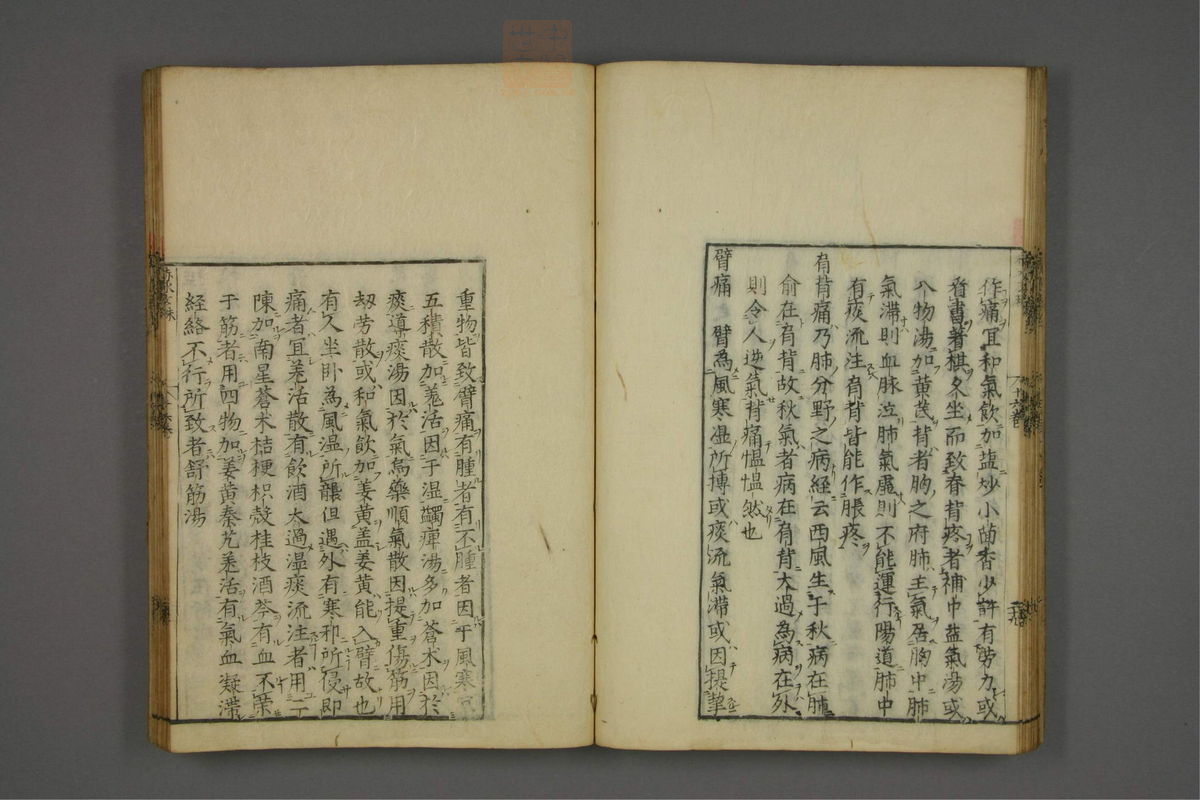 作痛宜和氣飲加塩炒小茴香少許有勞力或
看書著棋久坐而致脊背疼者補中益氣湯或
八物湯加黄芪背者胸之府肺主氣居胸中肺
氣滞則血脉泣肺氣虚則不能運行陽道肺中
有痰流注肩背皆能作脹疼
肩背痛乃肺分野之病経云西風生于秋病在肺
俞在肩背故秋氣者病在肩背大過為病在外
則令人逆氣背痛愠愠然也
臂痛 臂為風寒湿所摶或痰流氣滞或因提挈
重物皆致臂痛有腫者有不腫者因于風寒宜
五積散加羗活因于湿蠲痺湯多加蒼朮因於
痰導痰湯因於氣烏藥順氣散因提重傷筋用
刼劳散或和氣飲加姜黄盖姜黄能入臂故也
有久坐卧為風湿所襲但遇外有寒邪所侵即
痛者宜羗活散有飲酒太過湿痰流注者用二
陳加南星蒼朮桔梗枳殻桂枝酒芩有血不榮
于筋者用四物加姜黄秦艽羗活有氣血凝滞
経絡不行所致者舒筋湯